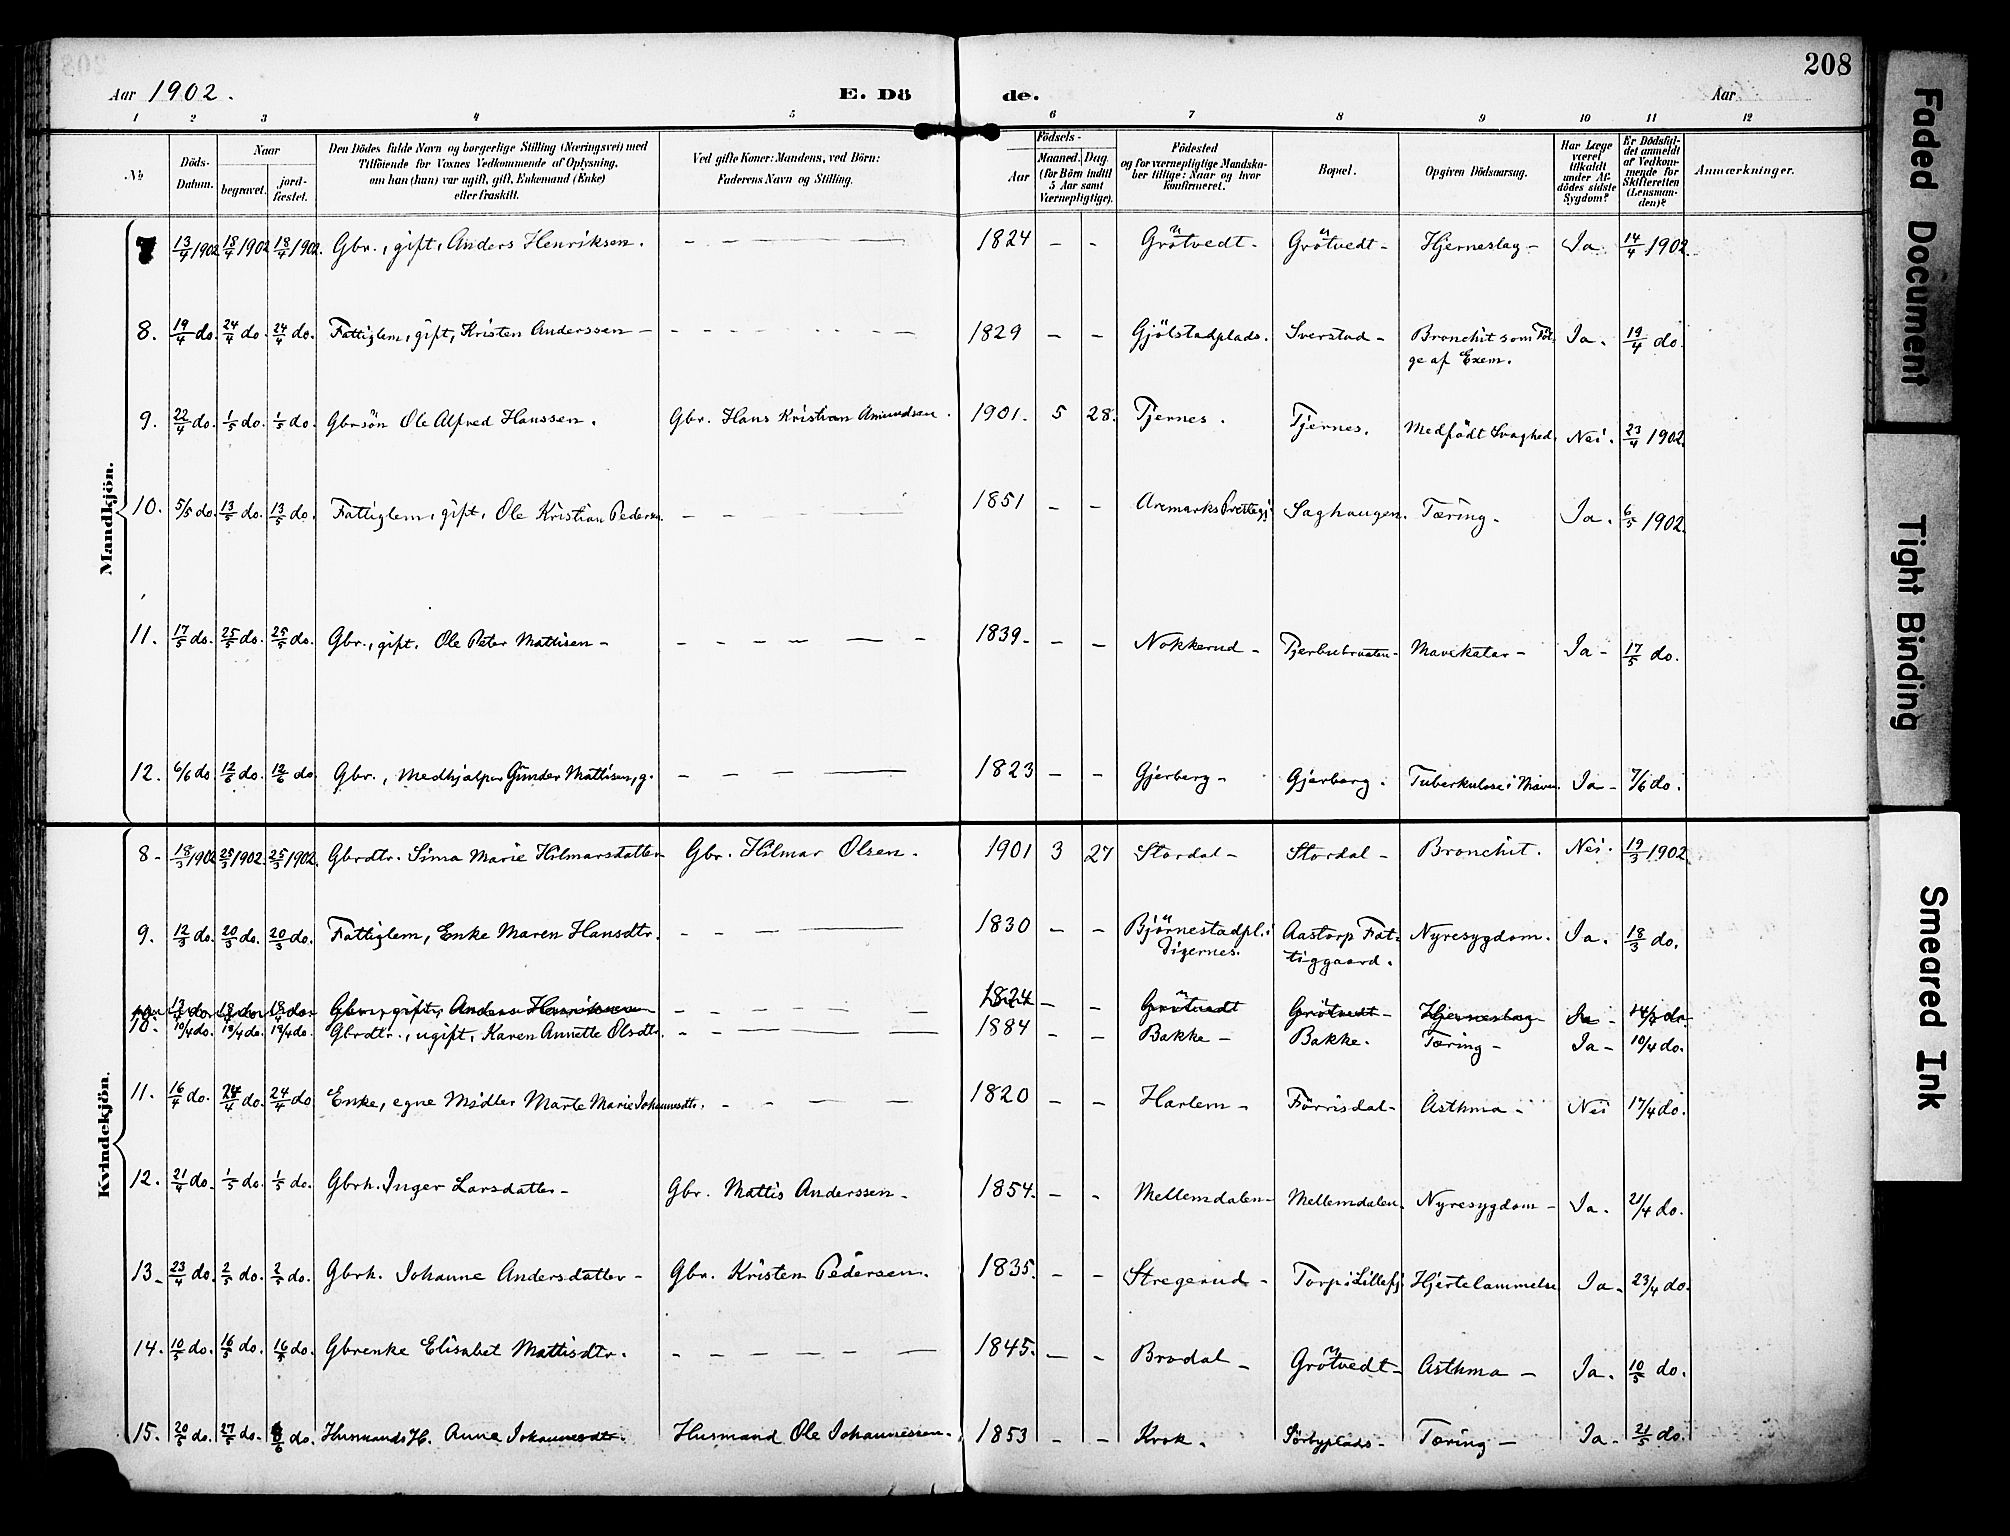 208
Aar 1902.
E. Dö de.
Aar
1 2 3 4 5 6 7 8 9 10 11 12
№ Döds-Datum. Naar begravet. jord-fæstet. Den Dödes fulde Navn og borgerlige Stilling (Næringsvei) med Tilföiende for Voxnes Vedkommende af Oplysning, om han (hun) var ugift, gift, Enkemand (Enke) eller fraskilt. Ved gifte Koner: Mandens, ved Börn: Faderens Navn og Stilling. Födsels- Aar Maaned. Dag. (for Börn indtil 5 Aar samt Værnepligtige). Födested og for værnepligtige Mandska-ber tillige: Naar og hvor konfirmeret. Bopæl. Opgiven Dödsaarsag. Har Læge været tilkaldt under Af-dödes sidste Sygdom? Er Dödsfal-det anmeldt af Vedkom-mende for Skifteretten (Lensman-den)? Anmærkninger.
Mandkjön.
7 13/4 1902 18/4 1902 18/4 1902. Gbr., gift, Anders Henriksen. — 1824 - - Grötvedt - Grötvedt - Hjerneslag - Ja. 14/4 1902.
8. 19/4 do. 24/4 do. 24/4 do. Fattiglem, gift, Kristen Anderssen - — 1829 - - Gjölstadplads. Sverstad - Bronchit som Föl-
ge af Exem. Ja. 19/4 do.
9. 22/4 do. 1/5 do. 1/5 do. Gbrsön Ole Alfred Hanssen. Gbr. Hans Kristian Amundsen. 1901. 5 28. Tjernes. Tjernes. Medfödt Svaghed. Nei. 23/4 1902.
10. 5/5 do. 13/5 do. 13/5 do. Fattiglem, gift, Ole Kristian Pedersen. — 1851 - - Aremarks Prestegj. Saghaugen. Tæring - Ja. 6/5 1902.
11. 17/5 do. 25/5 do. 25/5 do. Gbr., gift. Ole Peter Mattisen - — 1839 - - Nokkerud - Mavekatar - Ja - 17/5 do.
12. 6/6 do. 12/6 do. 12/6 do. Gbr., Medhjalper Gunder Mattisen, g. — 1823 - - Gjerberg - Gjerberg. Tuberkulose i Maven. Ja - 7/6 do.
Kvindekjön.
8 - 18/3 1902 25/3 1902. 25/3 1902. Gbrdtr. Sima Marie Hilmarsdatter Gbr. Hilmar Olsen. 1901 3 27 Stordal - Stordal - Bronchit. Nei. 19/3 1902
9. 12/3 do. 20/3 do. 20/3 do. Fattiglem, Enke Maren Hansdtr. — 1830 - - Björnestadpl. i
Digernes. Aastorp Fat-
tiggaard. Nyresygdom. Ja. 18/3 do.
13/4 do. 18/4 do. 18/4 do. Gbr., gift, Anders Henriksen — 1824 - - Grötvedt Grötvedt - Hjerneslag Ja - 14/4 do.
10. 10/4 do. 19/4 do. 19/4 do. Gbrdtr., ugift, Karen Annette Olsdtr. — 1884 - - Bakke - Bakke. Tæring - Ja - 10/4 do.
11. 16/4 do. 24/4 do. 24/4 do Enke, egne Midler Marte Marie Johannesdtr. — 1820 - - Harlem - Förrisdal - Asthma - Nei 17/4 do.
12. 21/4 do. 1/5 do. 1/5 do. Gbrk. Inger Larsdatter - Gbr. Mattis Anderssen - 1854. - - Mellemdalen - Mellemdalen. Nyresygdom - Ja. 21/4 do.
13 - 23/4 do. 2/5 do. 2/5 do. Gbrk. Johanne Andersdatter - Gbr. Kristen Pedersen. 1835. - - Stregerud - Torp i Lillefj. Hjertelammelse Ja. 23/4 do.
14. 10/5 do. 16/5 do. 16/5 do. Gbrenke Elisabet Mattisdtr. — 1845. - - Brodal - Grötvedt - Asthma - Ja. 10/5 do.
15. 20/5 do. 27/5 do. 8/6 do. Husmands H. Anne Johannesdtr. Husmand Ole Johannessen. 1853 - - Krok. Sörbyplads - Tæring - Ja. 21/5 do.
Faded Document
Tight Binding
Smeared Ink